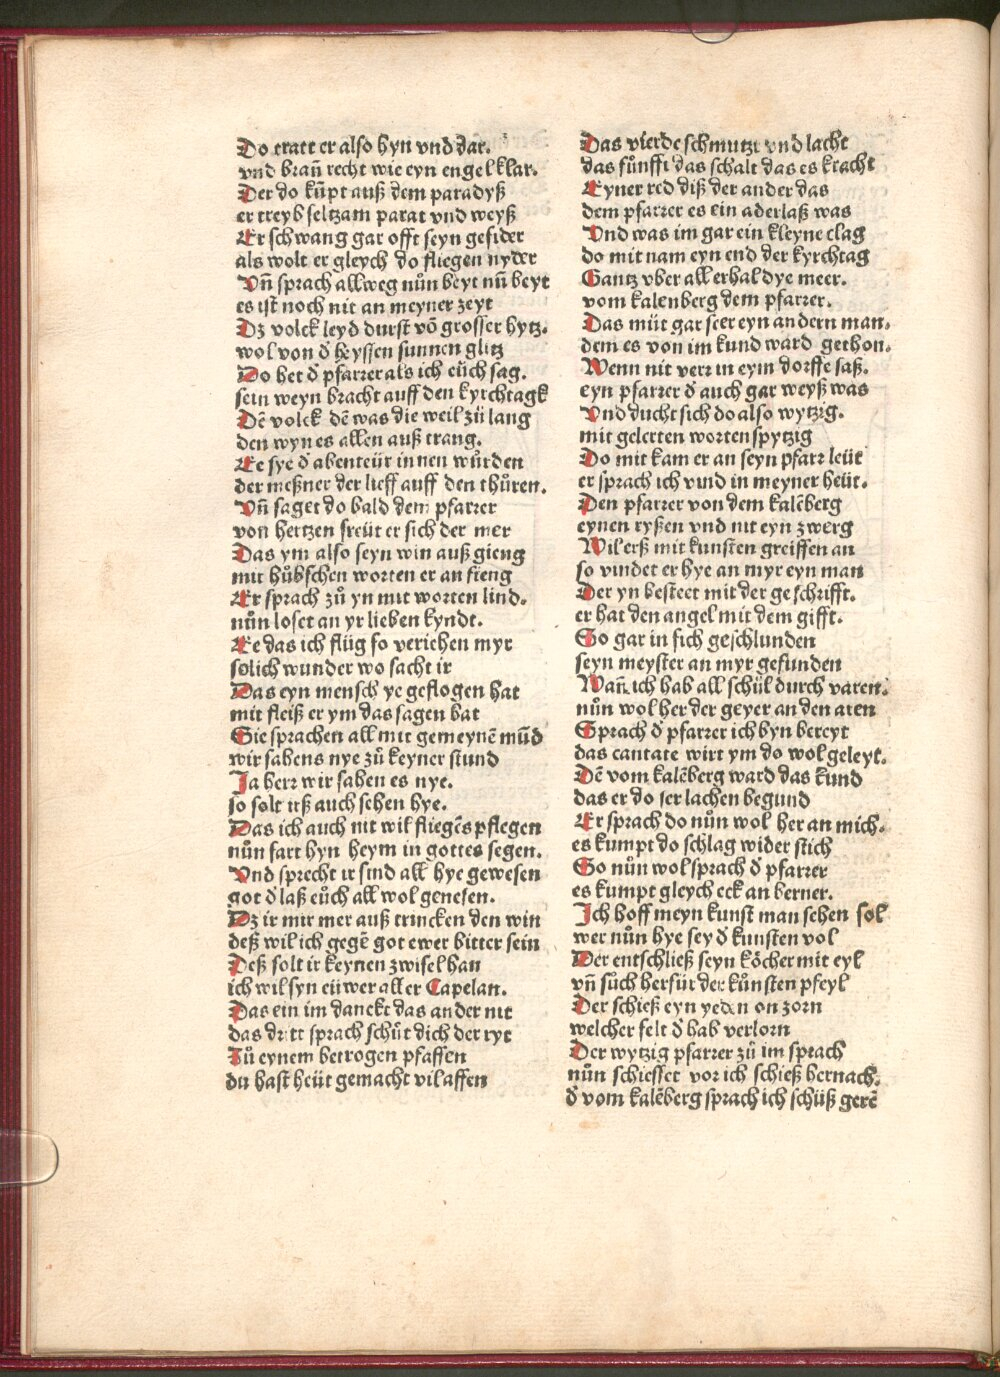 Do tratt er also hyn vnd dar.
vnd bran̄ recht wie eyn engel klar.
Der do kūpt auß dem paradyß
er treyb seltzam parat vnd weyß
Er schwang gar offt seyn gefider
als wolt er gleych do fliegen nyder
Vn̄ sprach allweg nůn beyt nū beyt
es ist noch nit an meyner zeyt
Dz volck leyd durst vō grosser hytz.
wol von d̄ heyssen sunnen glitz
Do het d̄ pfarrer als ich eüch sag.
sein weyn bracht auff den kyrchtagk
Dē volck dē was die weil zů lang
den wyn es allen auß trang.
Ee sye d̄ abenteür innen wůrden
der meßner der lieff auff den thůren.
Vn̄ saget do bald dem pfarrer
von hertzen freüt er sich der mer
Das ym also seyn win auß gieng
mit hůbschen worten er an fieng
Er sprach zů yn mit worten lind.
nůn loset an yr lieben kyndt.
Ee das ich flüg so veriehen myr
sölich wunder wo sacht ir
Das eyn mensch ye geflogen hat
mit fleiß er ym das sagen bat
Sie sprachen all mit gemeynē mūd
wir sahens nye zů keyner stund
Ja herr wir sahen es nye.
so solt irß auch sehen hye.
Das ich auch nit wil fliegēs pflegen
nůn fart hyn heym in gottes segen.
Vnd sprecht ir sind all hye gewesen
got d̄ laß eůch all wol genesen.
Dz ir mir mer auß trincken den win
deß wil ich gegē got ewer bitter sein
Deß solt ir keynen zwifel han
ich wil syn eüwer aller Capelan.
Das ein im danckt das ander nit
das dritt sprach schüt dich der ryt
Zů eynem betrogen pfaffen
du hast heüt gemacht vil affen
Das vierde schmutzt vnd lacht
das fůnfft das schalt das es kracht
Eyner red diß der ander das
dem pfarrer es ein aderlaß was
Vnd was im gar ein kleyne clag
do mit nam eyn end der kyrchtag
Gantz vber all erhal dye meer.
vom kalenberg dem pfarrer.
Das müt gar seer eyn andern man.
dem es von im kund ward gethon.
Wenn nit verr in eym dorffe saß.
eyn pfarrer d̄ auch gar weyß was
Vnd ducht sich do also wytzig.
mit gelerten worten spytzig
Do mit kam er an seyn pfarr leüt
er sprach ich vind in meyner heüt.
Den pfarrer von dem kalēberg
eynen ryßen vnd nit eyn zwerg
Wil erß mit kunsten greiffen an
so vindet er hye an myr eyn man
Der yn besteet mit der geschrifft.
er hat den angel mit dem gifft.
So gar in sich geschlunden
seyn meyster an myr gefunden
Wan̄ ich hab all schůl durch varen.
nůn wol her der geyer an den aren
Sprach d̄ pfarrer ich byn bereyt
das cantate wirt ym do wol geleyt.
Dē vom kalēberg ward das kund
das er do ser lachen begund
Er sprach do nůn wol her an mich.
es kumpt do schlag wider stich
So nůn wol sprach d̄ pfarrer
es kumpt gleych eck an berner.
Ich hoff meyn kunst man sehen sol
wer nůn hye sey d̄ kunsten vol
Der entschließ seyn köcher mit eyl
vn̄ sůch herfür der kůnsten pfeyl
Der schieß eyn yeden on zorn
welcher felt d̄ hab verlorn
Der wytzig pfarrer zů im sprach
nůn schiesset vor ich schieß hernach.
d̄ vom kalēberg sprach ich schüß gerē